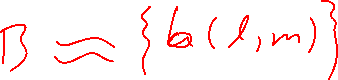 B ≈ {b(l,m)}